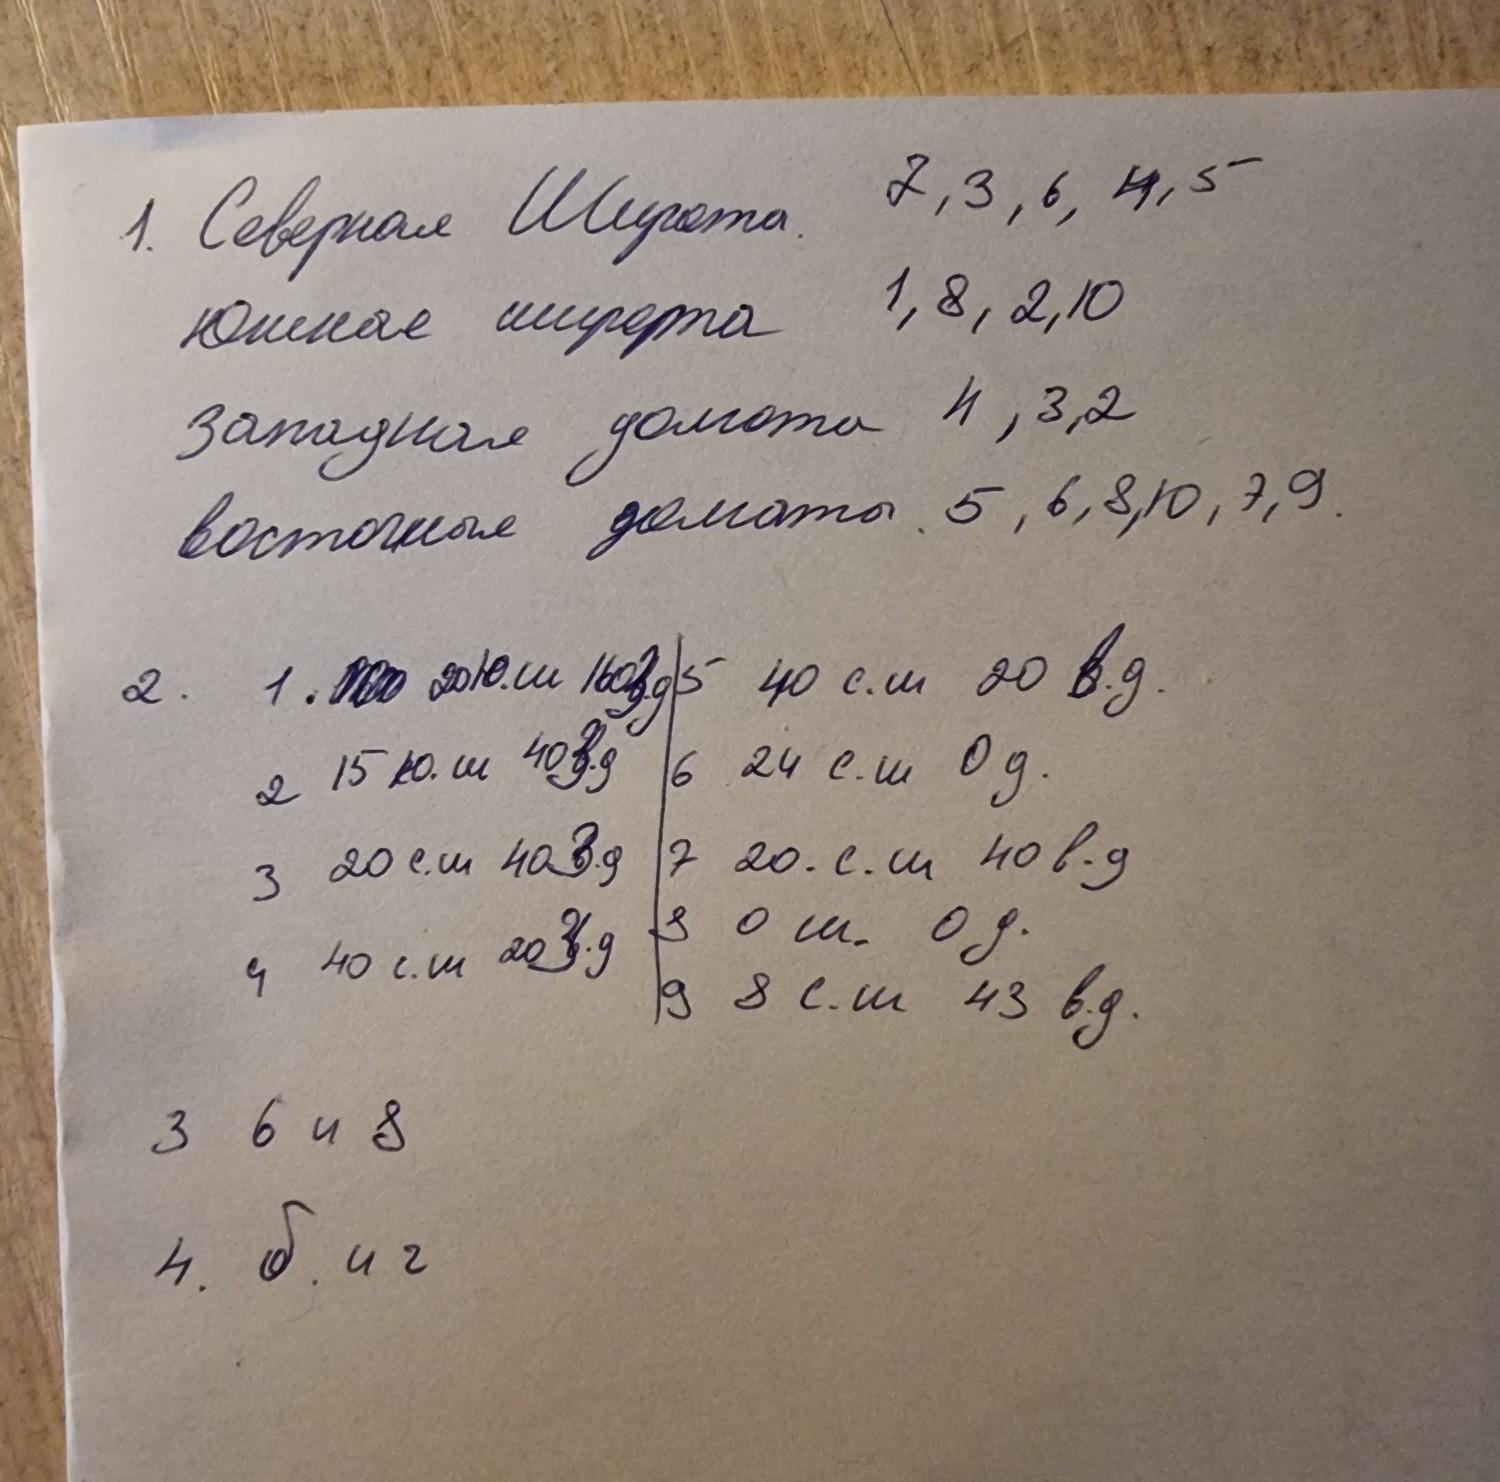 1. Северная Широта. 7, 3, 6, 4, 5
Южная широта 1, 8, 2, 10
Западная долгота 4, 3, 2
восточные долготы. 5, 6, 8, 10, 7, 9.
2. 1. 20 Ю.ш 160 з.д 5 40 с.ш 20 в.д.
2 15 ю.ш 40 з.д 6 24 с.ш 0 д.
3 20 с.ш 40 з.д 7 20. с.ш 40 в.д
4 40 с.ш 20 з.д 8 0 ш. 0 д.
9 8 с.ш 43 в.д.
3 6 и 8
4. б. и г